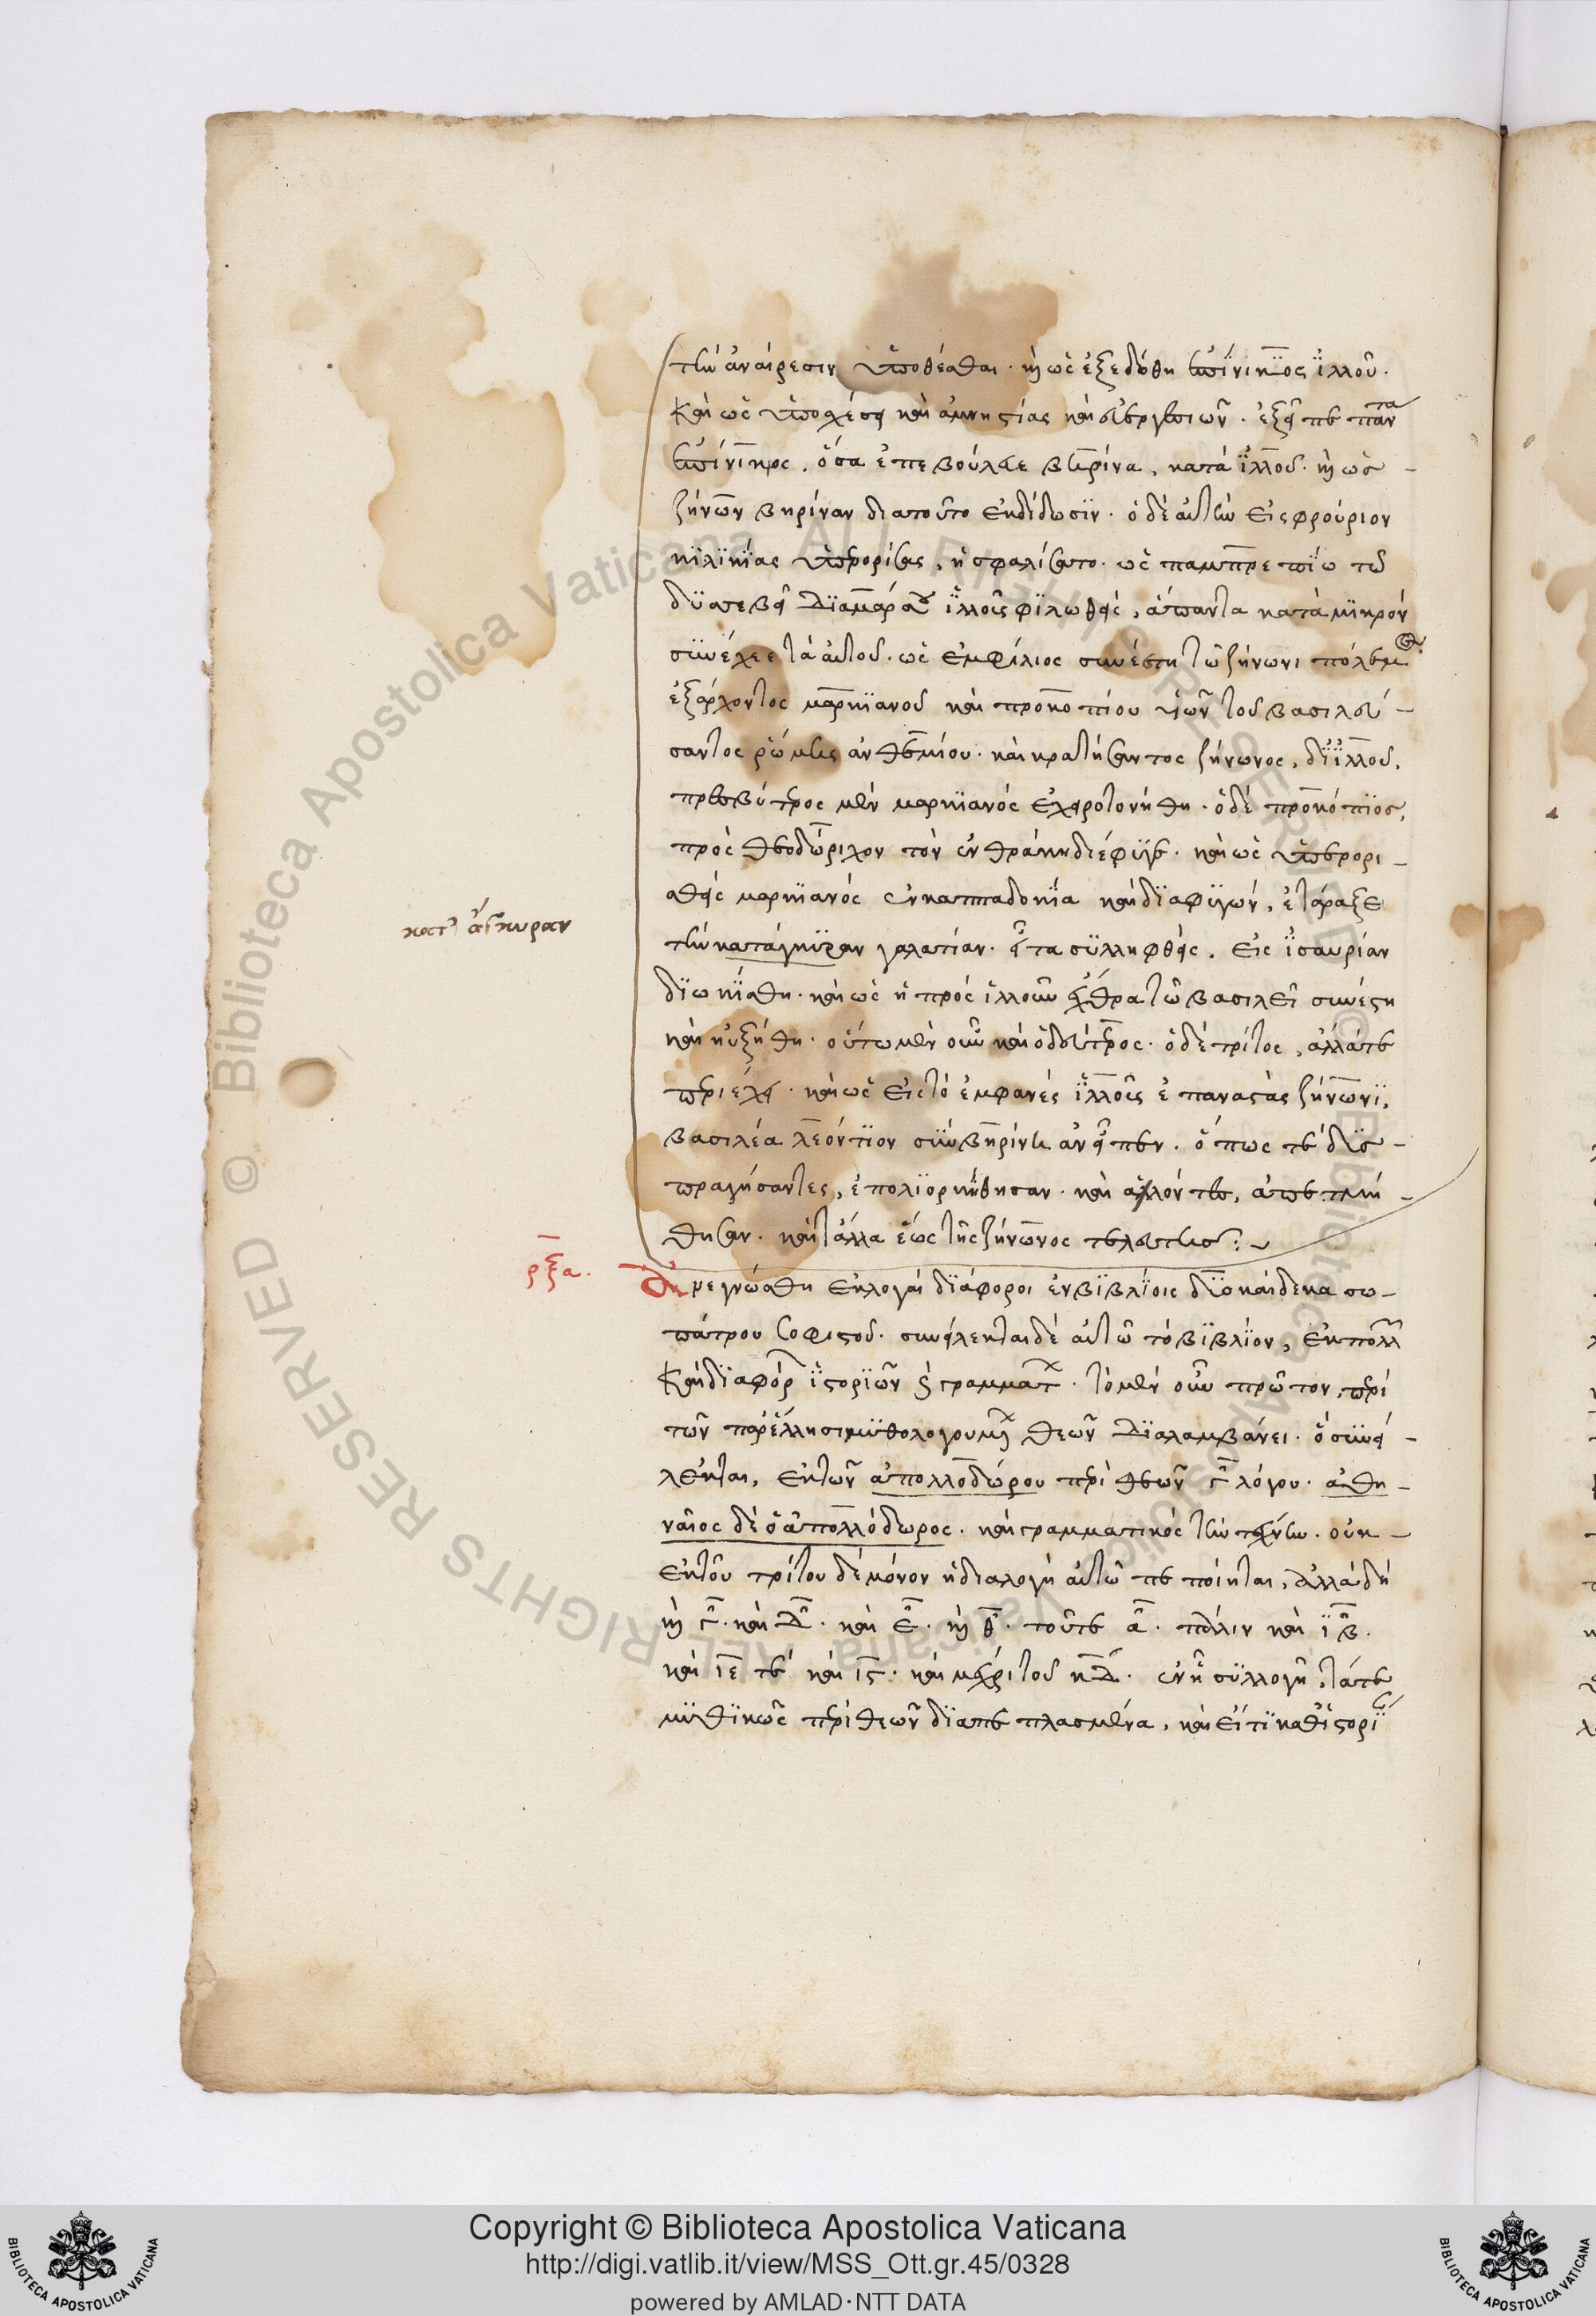 τὴν ἀναίρεσιν ὑποθέσθαι· καὶ ὡς ἐξεδόθη ἐπίνικος ἰλλοῦ.
καὶ ὡς ὑποσχέσει καὶ ἀμνηστίας καὶ εὐεργεσιῶν. ἐξεῖπε πάντα
ἐπίνικος, ὅσα ἐπεβούλευε βερίνα, κατὰ ἰλλοῦ. καὶ ὡς
ζήνων βηρίναν διατοῦτο ἐκδίδωσιν. ὁ δὲ αὐτὴν εἰς φρούριον
κιλικίας ὑπερορίσας, ἠσφαλίσατο. ὡς παμπρεπίω τῶ
δυσσεβεῖ διαμάρσου ἰλλοῦς φιλωθεὶς, ἅπαντα κατὰ μικρὸν
συνέχεε τὰ αὐτοῦ. ὡς ἐμφύλιος συνέστη τῶ ζήνωνι πόλεμος
ἐξάρχοντος μαρκιανοῦ καὶ προκοπίου υἱῶν τοῦ βασιλεύ-
σαντος ῥώμης ἀνθεμίου. καὶ κρατήσαντος ζήνωνος, δι' ἰλλοῦ,
πρεσβύτερος μὲν μαρκιανὸς ἐχειροτονήθη. ὁ δὲ προκόπιος,
πρὸς θεοδώριχον τὸν ἐν θράκη διέφυγε. καὶ ὡς ὑπερορι-
σθεὶς μαρκιανὸς ἐν καππαδοκία καὶ διαφυγὼν, ἐτάραξε
τὴν κατάγκυραν γαλατίαν. εἶτα συλληφθεὶς, εἰς ἰσαυρίαν
διωκίσθη. καὶ ὡς ἡ πρὸς ἰλλοῦν ἔχθρα τῶ βασιλεῖ συνέστη
καὶ ηὐξήθη. οὕτω μὲν οὖν καὶ ὁ δεύτερος. ὁ δὲ τρίτος, ἄλλα τε
περιέχει. καὶ ὡς εἰς τὸ ἐμφανὲς ἰλλοῦς ἐπαναστὰς ζήνωνι,
βασιλέα λεόντιον σὺν βηρίνη ἀνεῖπεν. ὅπως τε δυσ-
πραγήσαντες, ἐπολιορκήθησαν. καὶ ἁλόντες, ἀπετμή-
θησαν. καὶ τἄλλα ἕως τῆς ζήνωνος τελευτῆς:
ρξα.
Ἀνεγνώσθη ἐκλογαὶ διάφοροι ἐν βιβλίοις δυοκαίδεκα σω-
πάτρου σοφιστοῦ. συνείλεκται δὲ αὐτῶ τὸ βιβλίον, ἐκ πολλ
καὶ διαφόρ ἱστοριῶν καὶ γραμματ. τὸ μὲν οὖν πρῶτον, περὶ
τῶν παρ' ἕλλησι μυθολογουμ θεῶν διαλαμβάνει. ὃ συνεί-
λεκται, ἐκ τῶν ἀπολλοδώρου περὶ θεῶν γ λόγου. ἀθη-
ναῖος δὲ ὁ ἀπολλόδωρος. καὶ γραμματικὸς τὴν τέχνην. οὐκ
ἐκ τοῦ τρίτου δὲ μόνον ἡ διαλογὴ αὐτῶ πεποίηται, ἀλλὰ δὴ
καὶ γ. καὶ δ. καὶ ε. καὶ θ. τοῦτε α. πάλιν καὶ ιβ.
καὶ ιε τε καὶ ις. καὶ μέχρι τοῦ κδ. ἐν ἧ συλλογῆ, τά τε
μυθικῶς περὶ θεῶν διαπεπλασμένα, καὶ εἴ τι καθ' ἱστορί
κατ' ἄγκυραν
Copyright © Biblioteca Apostolica Vaticana
http://digi.vatlib.it/view/MSS_Ott.gr.45/0328
powered by AMLAD·NTT DATA